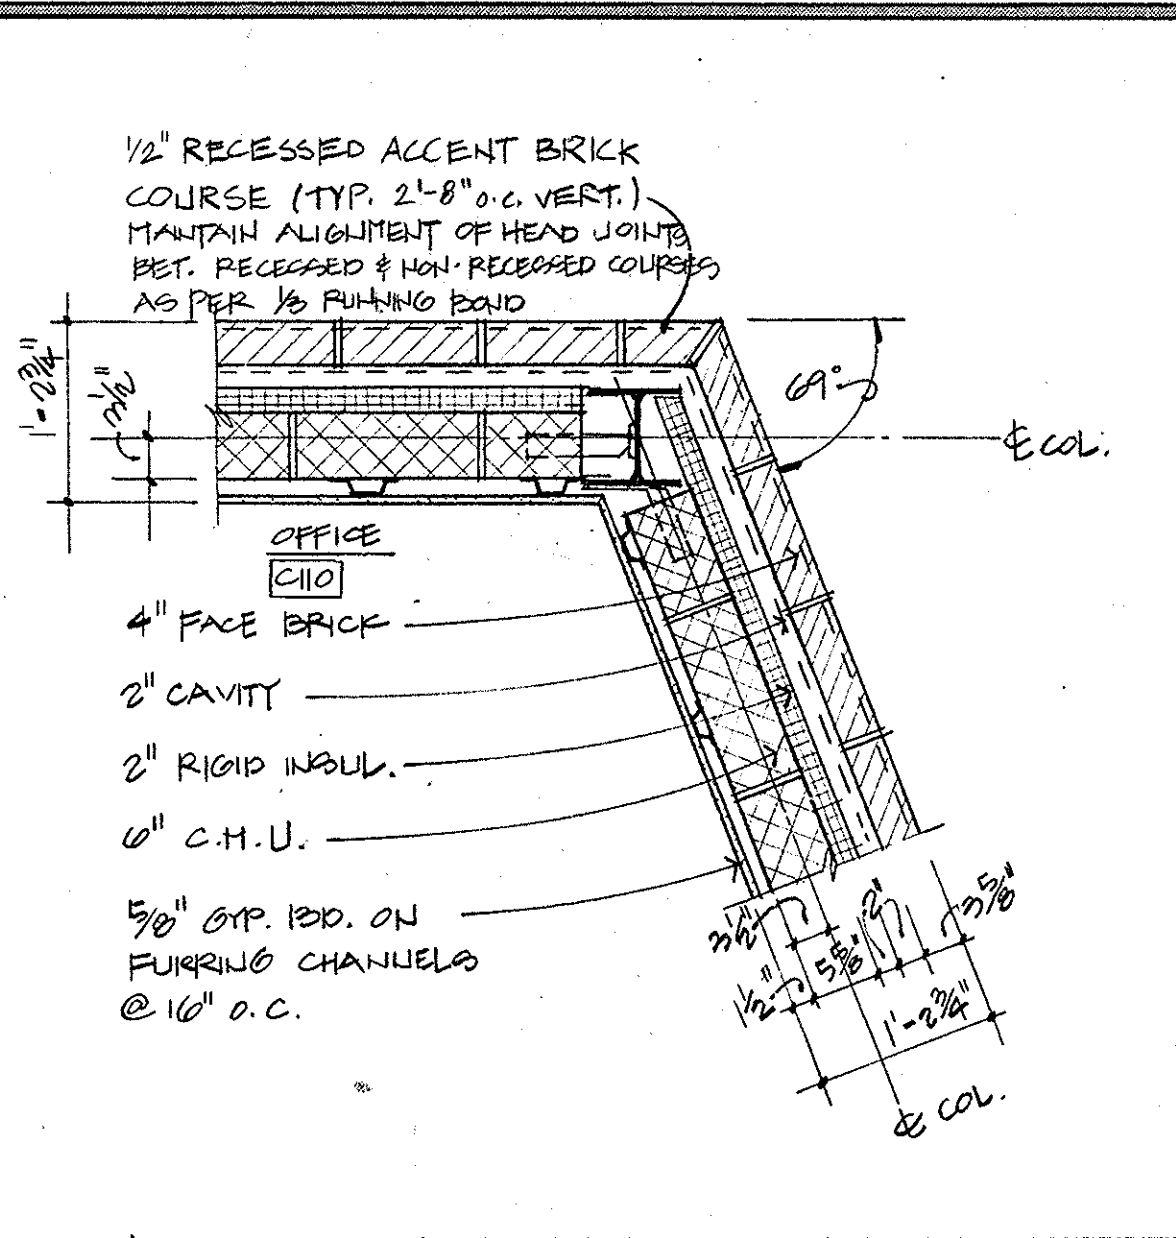 1/2" RECESSED ACCENT BRICK
COURSE (TYP. 2'-8" o.c. VERT.)
MAINTAIN ALIGNMENT OF HEAD JOINTS
BET. RECESSED & NON-RECESSED COURSES
AS PER 1/3 RUNNING BOND
1'-2 3/4"
3 1/2"
69°
℄ COL.
OFFICE
C110
4" FACE BRICK
2" CAVITY
2" RIGID INSUL.
6" C.M.U.
5/8" GYP. BD. ON
FURRING CHANNELS
@ 16" O.C.
3 1/2"
1 1/2"
5 5/8"
2"
3 5/8"
1'-2 3/4"
℄ COL.